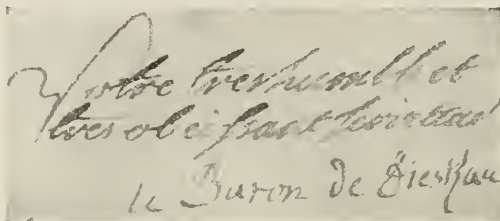 Votre tres humble et
tres obeissant serviteur
le Baron de Dieskau